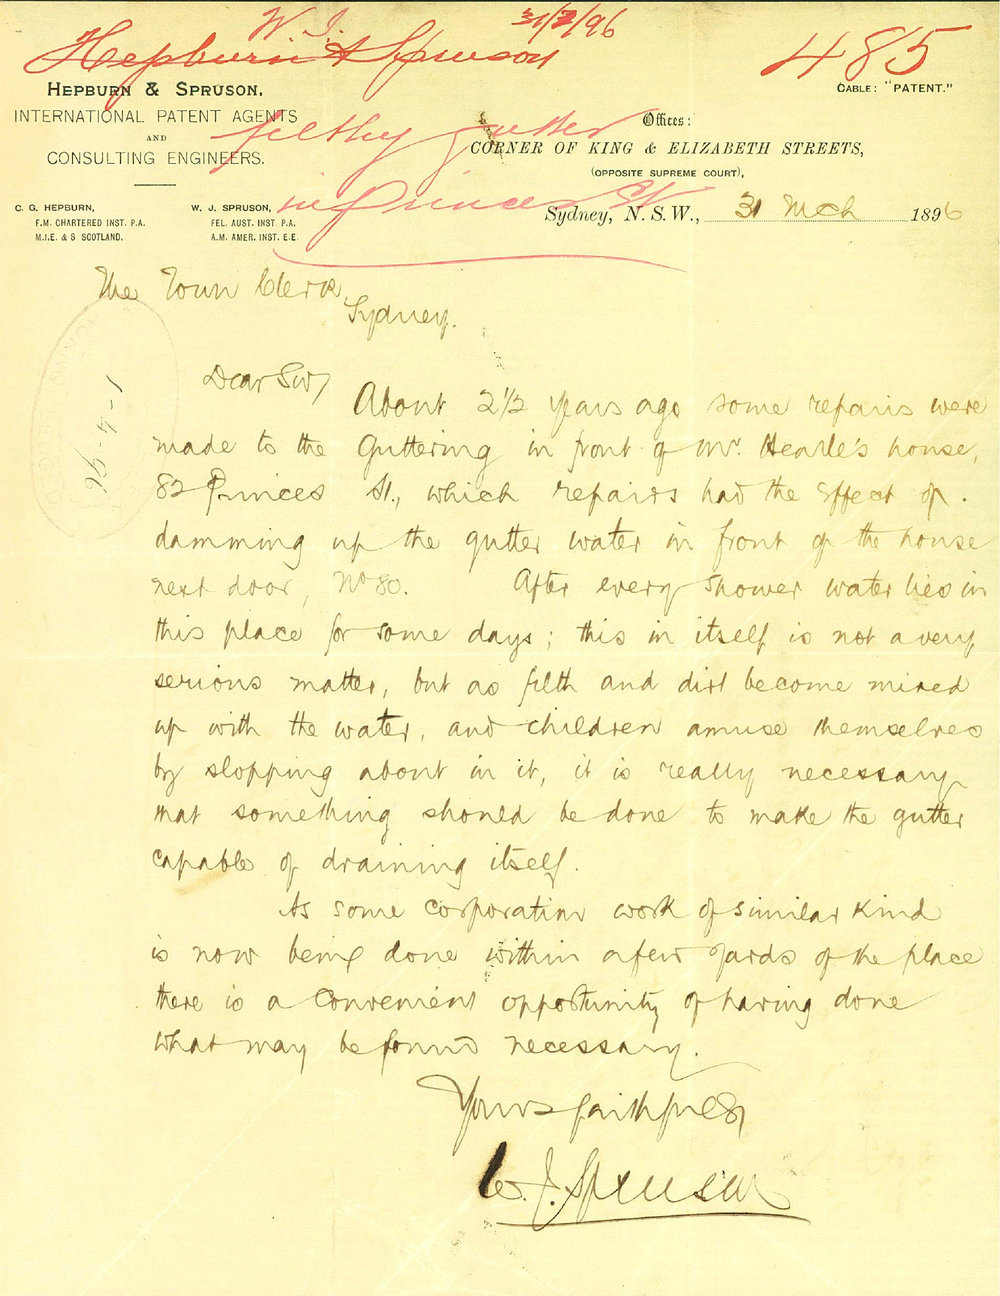 W. J. 31/3/96
Hepburn & Spruson 485
HEPBURN & SPRUSON,
INTERNATIONAL PATENT AGENTS
AND
CONSULTING ENGINEERS.
CABLE: "PATENT."
filthy gutter
in Princes St
Offices:
CORNER OF KING & ELIZABETH STREETS,
(OPPOSITE SUPREME COURT),
C. G. HEPBURN,
F.M. CHARTERED INST. P.A.
M.I.E. & S SCOTLAND.
W. J. SPRUSON,
FEL. AUST. INST P.A.
A.M. AMER. INST. E.E.
Sydney, N. S. W., 31 Mch 1896
The Town Clerk,
Sydney.
1-4-96
Dear Sir,
About 2 1/2 years ago some repairs were
made to the Guttering in front of Mr. Hearle's house,
82 Princes St., which repairs had the effect of
damming up the gutter water in front of the house
next door, No 80. After every shower water lies in
this place for some days; this in itself is not a very
serious matter, but as filth and dirt become mixed
up with the water, and children amuse themselves
by slopping about in it, it is really necessary
that something should be done to make the gutter
capable of draining itself.
As some corporation work of similar kind
is now being done within a few yards of the place
there is a convenient opportunity of having done
what may be found necessary.
Yours faithfully
W. J. Spruson